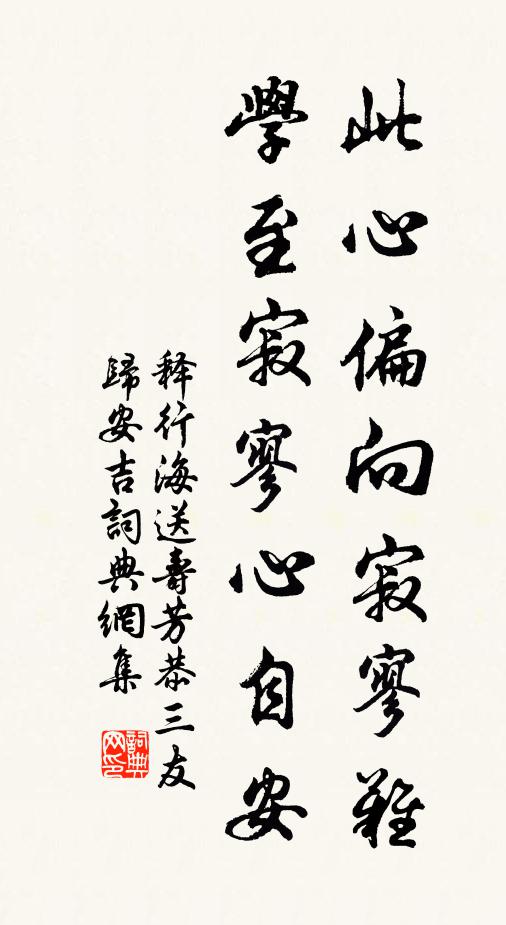 此心偏向寂寥難
學至寂寥心自安
释行海送壽芳恭三友
歸安吉詞典網集
詞典
网印